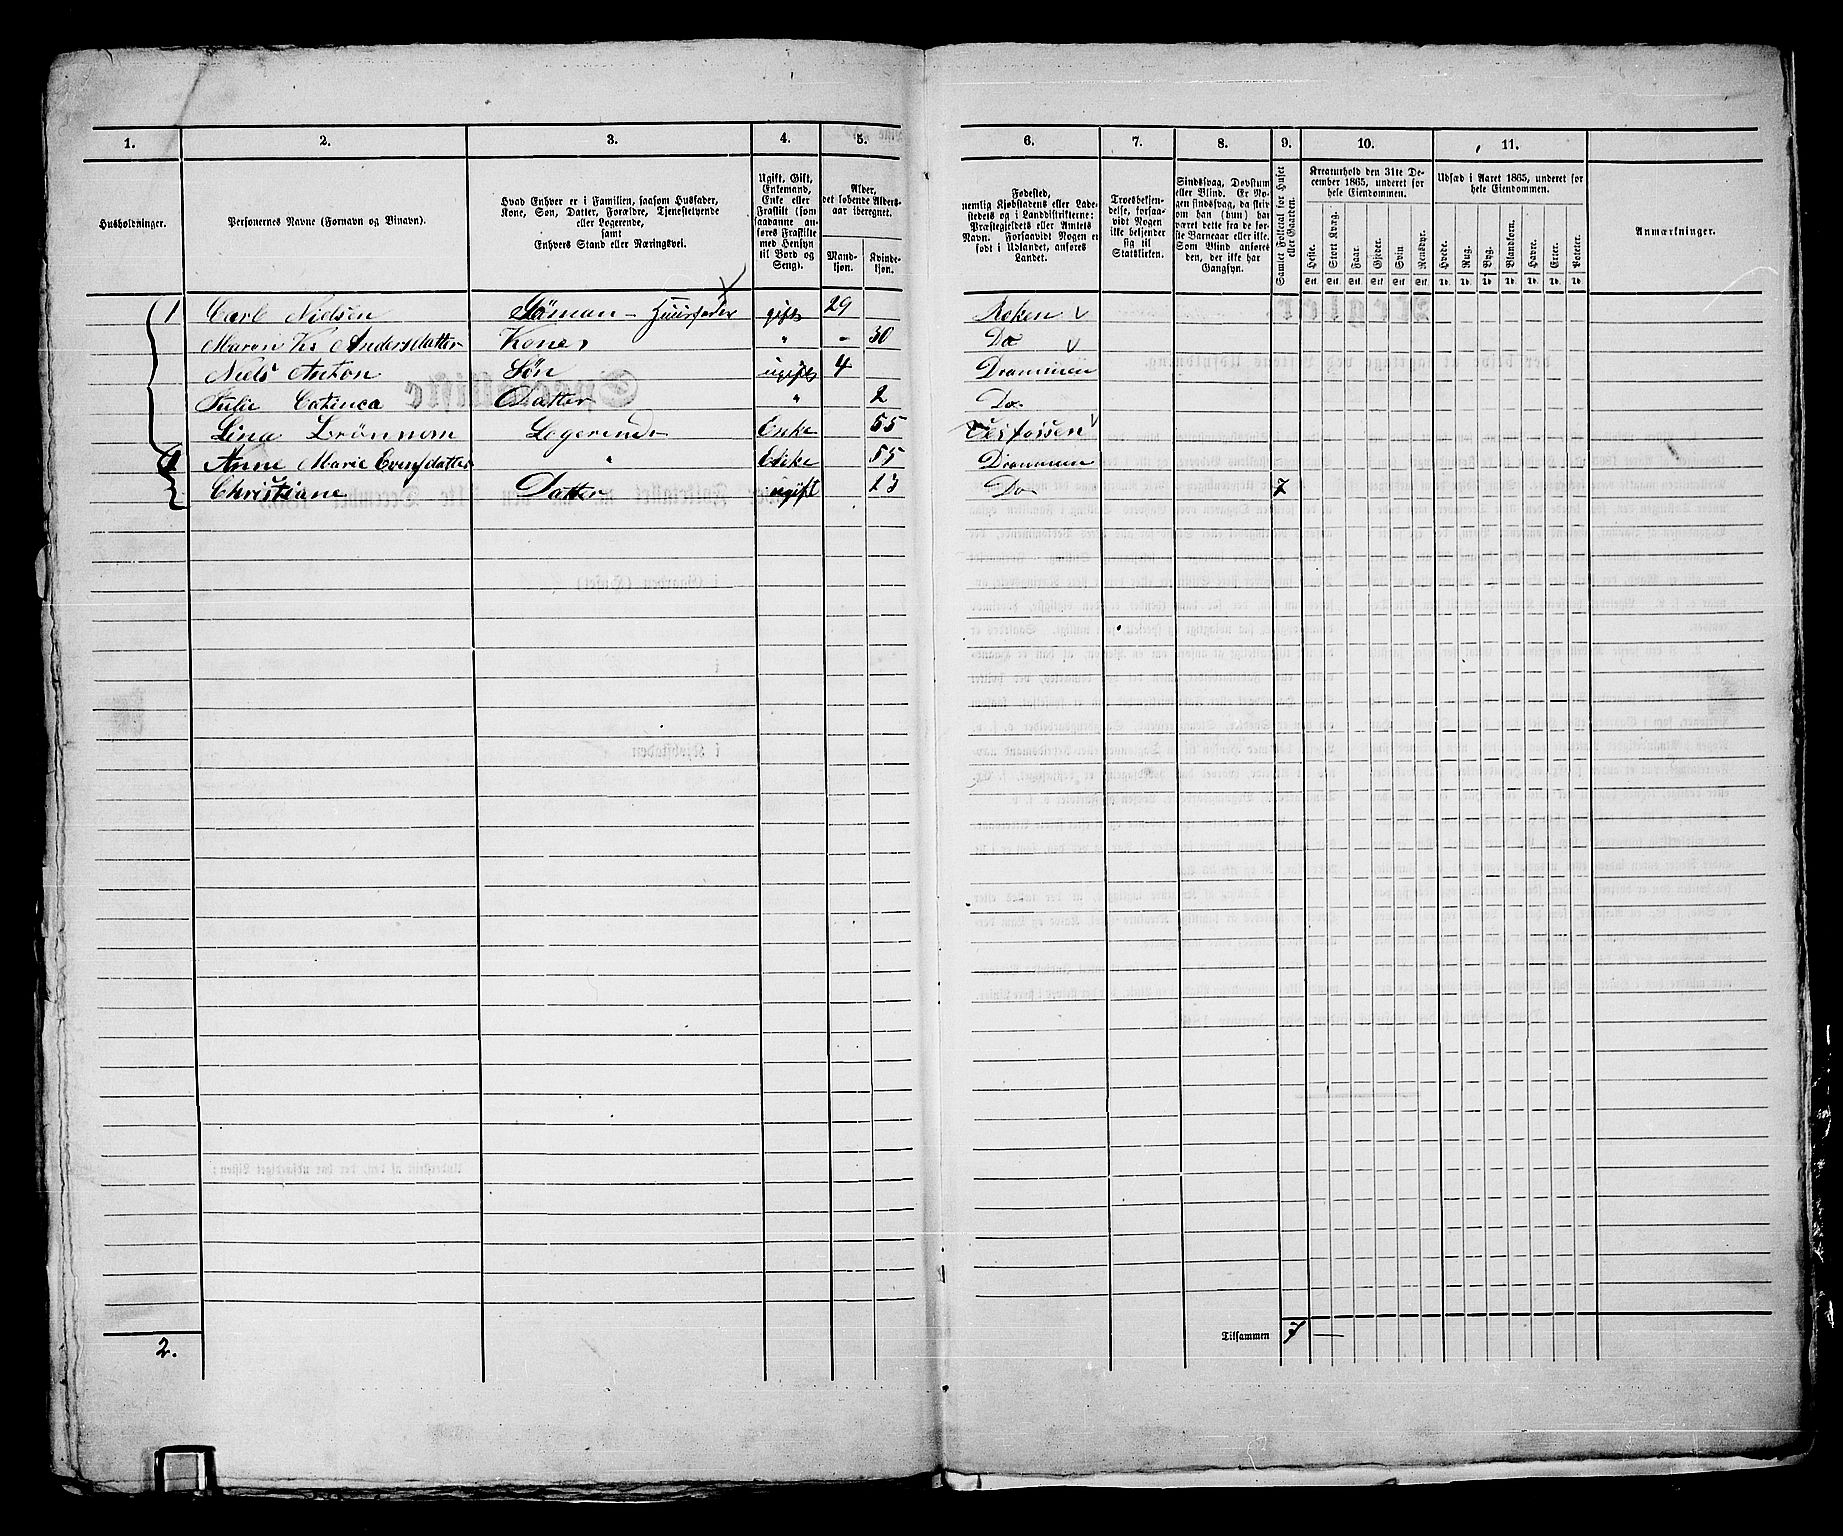 1. 2. 3. 4. 5. 6. 7. 8. 9. 10. 11.
Husholdninger.
Personernes Navne (Fornavn og Binavn).
Hvad Enhver er i Familien, saasom Husfader,
Kone, Søn, Datter, Forældre, Tjenestetyende
eller Logerende,
samt
Enhvers Stand eller Næringsvei.
Ugift, Gift,
Enkemand,
Enke eller
Fraskilt (som
saadanne an-
føres Fraskilte
med Hensyn
til Bord og
Seng).
Alder,
det løbende Alders-
aar iberegnet.
Mand-
kjøn.
Kvinde-
kjøn.
Fødested,
nemlig Kjøbstadens eller Lade-
stedets og i Landdistrikterne:
Præstegjeldets eller Amtets
Navn. Forsaavidt Nogen er
født i Udlandet, anføres
Landet.
Troesbekjen-
delse, forsaa-
vidt Nogen
ikke bekjender
sig til
Statskirken.
Sindssvag, Døvstum
eller Blind. Er No-
gen sindssvag, da skriv
om han (hun) har
været dette fra de før-
ste Barneaar eller ikke.
Som Blind anføres
den, der ikke har
Gangsyn.
Samlet Folketal for Huset
eller Gaarden.
Kreaturhold den 31te De-
cember 1865, underet for
hele Eiendommen.
Heste. Stort Kvæg. Faar. Gjeder. Svin Rensdyr.
Stk. Stk. Stk. Stk. Stk. Stk.
Udsæd i Aaret 1865, underet for
hele Eiendommen.
Hvede. Rug. Byg. Blandkorn. Havre. Erter. Poteter.
Td. Td. Td. Td. Td. Td. Td.
Anmærkninger.
1 Carl Nielsen Söman - Huusfader gift 29 Röken
Maren Kr Andersdatter Kone " - 30 Do
Niels Anton Sön ugift 4 Drammen
Julie Catinca Datter " 2 Do
Lina Logerende Enke 55
1 Anne Marie Evensdatter " Enke 55 Drammen
Christiane Datter ugift 13 Do 7
2. Tilsammen 7 —